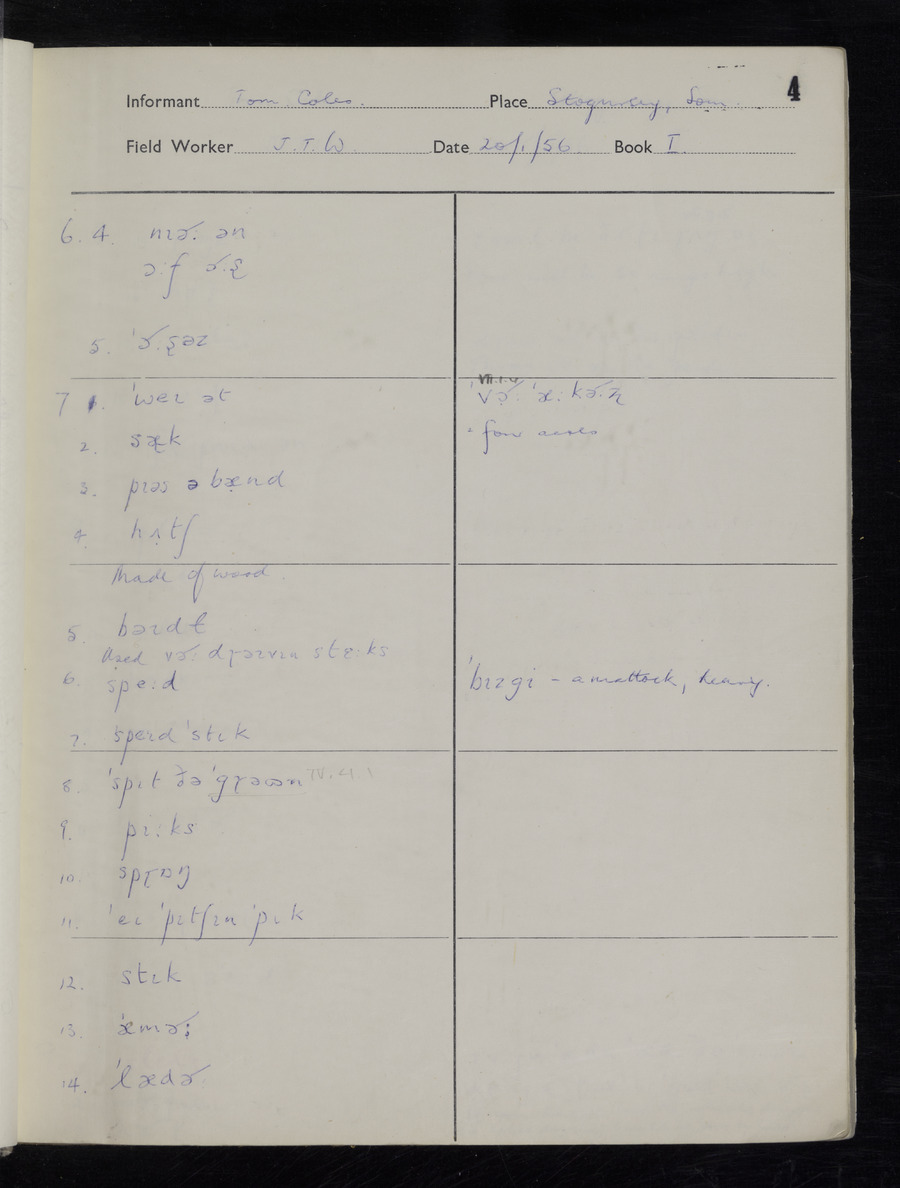 4
Informant Tom Coles. Place Stogursey, Som.
Field Worker J.T.W. Date 20/1/56 Book I.
6. 4. nɪɚ: ən
ɔ:f ɚ:ʂ
5. ˈɚ:ʂəz
7 1. ˈweɪ ət
2. sæk
3. pɪəs ə bænd
4. hʌtʃ
Made of wood.
5.
Used vɚ: dɽəɪvɪn stɛ:ks
6. speɪd
7. ˈspeɪd ˈstɪk
8. ˈspɪt ðə ˈgɽəʊn IV.4.1
9. pɪ:ks
10. spɽɒŋ
11. ˈeɪ ˈpɪtʃɪn ˈpɪk
12. stɪk
13. ˈæmɚ:
14. ˈlædɚ
VII.1.4
¹ vɚ: ˈæ:kɚ:ʐ
² four acres
ˈbɪzgi – a mattock, heavy.